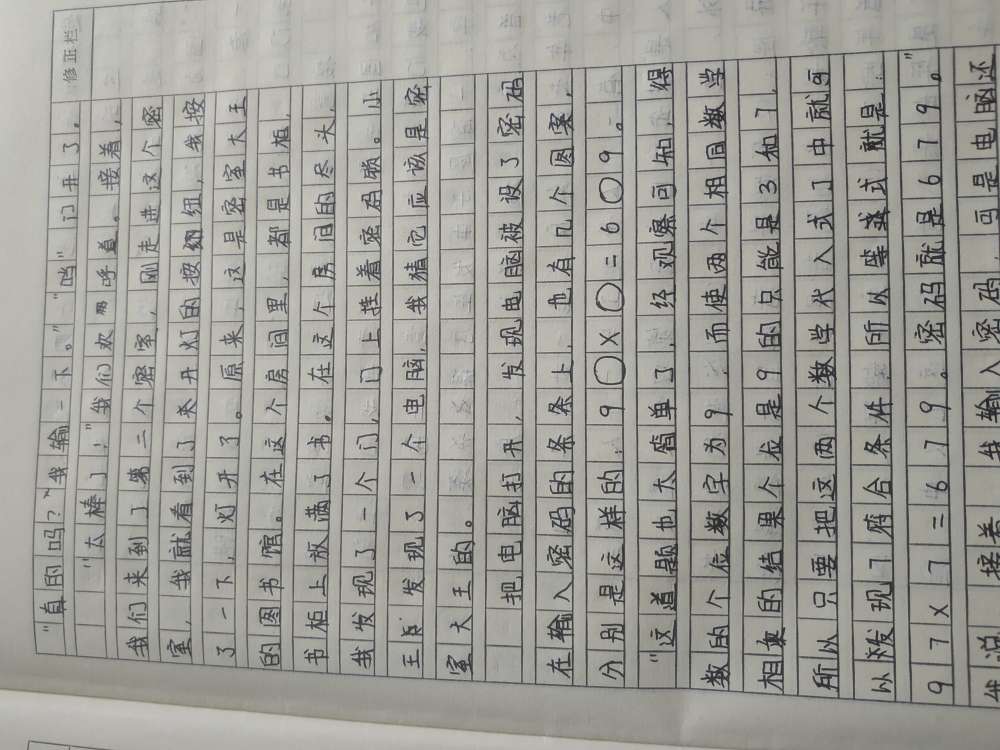 修正栏
“真的吗?”我输一下。”“当”门开了。
“太棒了!”我们欢呼道。接着,
我们来到了第二个密室,刚走进这个密
室,我就看到了关开灯的按钮,我按
了一下,灯开了。原来,这是密室大王
的图书馆。在这个房间里,都是书柜,
书柜上放满了书。在这个房间的尽头,
我发现了一个门,门上挂着密码锁。小
王发现了一个电脑,我猜它应该是密
室大王的。
把电脑打开,发现电脑被设了密码
在输入密码的条条上,也有几个图案,
分别是这样的:9○×○=6○9。
“这道题也太简单了,经观察可知,得
数的个位数字为9,而使两个相同数学
相乘的结果个位是9的只能是3和7,
所以只要把这两个数学代入式了中就可
以发现7符合条件,所以等式就是
97×7=679。密码就是679。”
我说,接着,我输入密码,可是电脑还